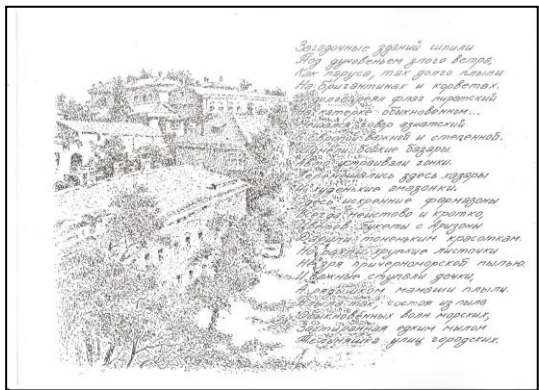 Загадочные зданий шпили
Под дуновеньем злого ветра,
Как паруса, так долго плыли
На бригантинах и корветах.
флаг пиратский
На катерке обыкновенном...
говор азиатский
важной и степенной.
бойкие базары
Авто устраивали гонки.
здесь хазары
И худенькие амазонки.
Здесь искренние фармазоны
Всегда неистово и кротко,
букеты с Аризоны
Дарили тоненьким красоткам.
хрупкие листочки
причерноморской пылью.
И важные ступали дочки,
А следом мамаши плыли.
так, состоя из пыла
Обыкновенных волн морских,
едким мылом
Тельняшка улиц городских.